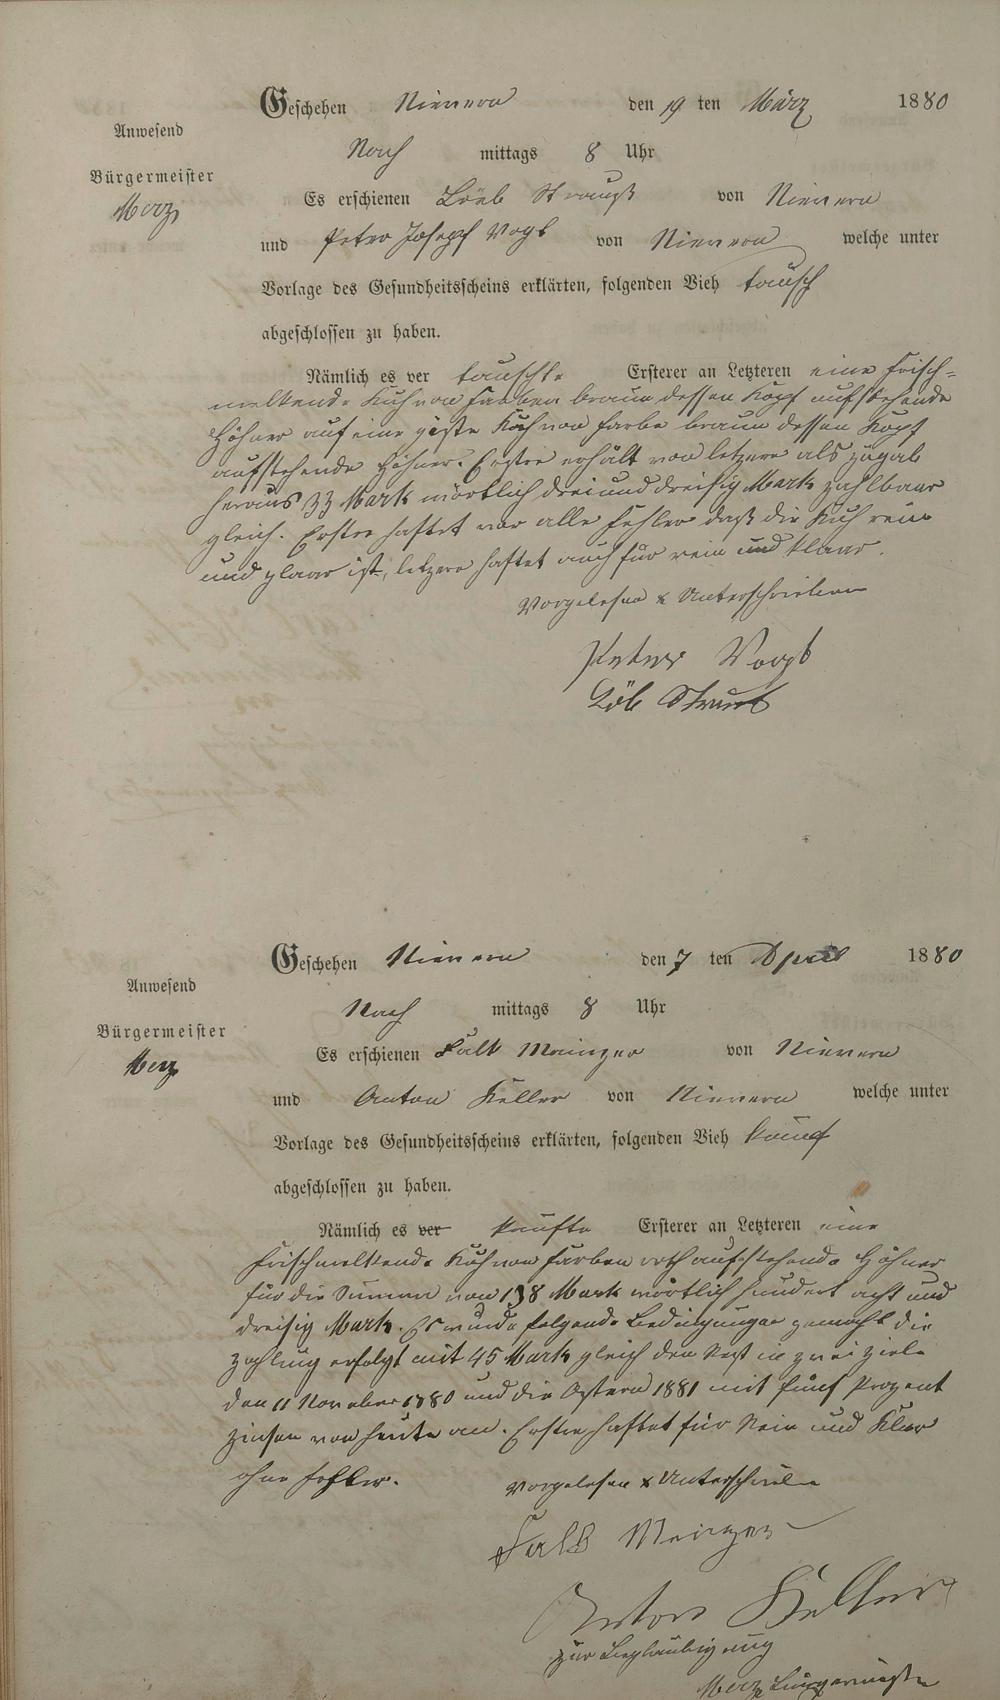 Geschehen Nievern den 19 ten März 1880
Anwesend
Nach mittags 8 Uhr
Bürgermeister
Merz
Es erschienen Löeb Strauß von Nievern
und Peter Josepf Vogt von Nievern welche unter
Vorlage des Gesundheitsscheins erklärten, folgenden Vieh tausch
abgeschlossen zu haben.
Nämlich es ver tauschte Ersterer an Letzteren eine frisch=
melkende Kuh von farben braun dessen Kopf aufstehende
Höhner auf eine giste Kuh von farbe braun dessen Kopf
aufstehende Höhner. Erster erhält von letzere als zugab
heraus 33 Mark wörtlich dreiunddreisig Mark zahlbaar
gleich. Erster haftet vor alle fehler daß die Kuh rein
und glaar ist, letzere haftet auch für rein und klaar.
Vorgelesen & Unterschrieben
Peter Vogt
Löb Straus
Geschehen Nievern den 7 ten April 1880
Anwesend
Nach mittags 8 Uhr
Bürgermeister
Merz
Es erschienen Falk Mainzer von Nievern
und Anton Keller von Nievern welche unter
Vorlage des Gesundheitsscheins erklärten, folgenden Vieh kauf
abgeschlossen zu haben.
Nämlich es ver kaufte Ersterer an Letzteren eine
frischmelkende Kuh von farben roth aufstehende Höhner
für die Summe von 138 Mark wörtlich hundert acht und
dreisig Mark. Es wurde folgende Bedingungen gemacht die
zahlung erfolgt mit 45 Mark gleich den Rest in zwei ziele
den 11 November 1880 und die Ostern 1881 mit fünf Prozent
zinsen von heute an. Erster haftet für Rein und Klar
ohne fehler.
Vorgelesen & Unterschriebe
Falk Meinzer
Anton Keller
zur Beglaubigung
Merz Bürgermeister